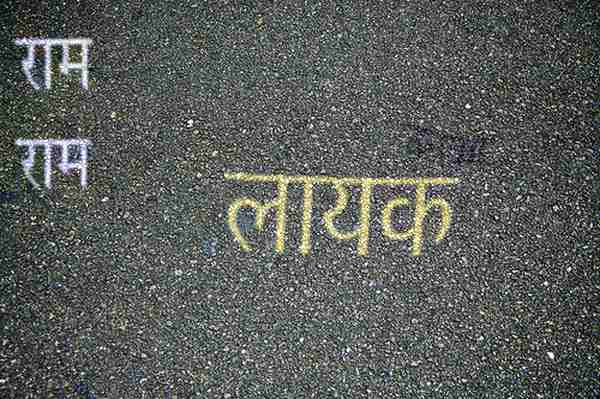 राम
राम
लायक